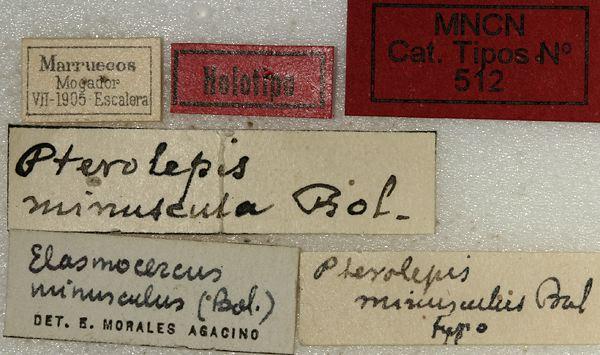 Marruecos
Mogador
VII-1905-Escalera
Holotipo
MNCN
Cat. Tipos Nº
512
Pterolepis
minuscula Bol.
Elasmocercus
minusculus (Bol.)
DET. E. MORALES AGACINO
Pterolepis
minusculus Bol
Typo